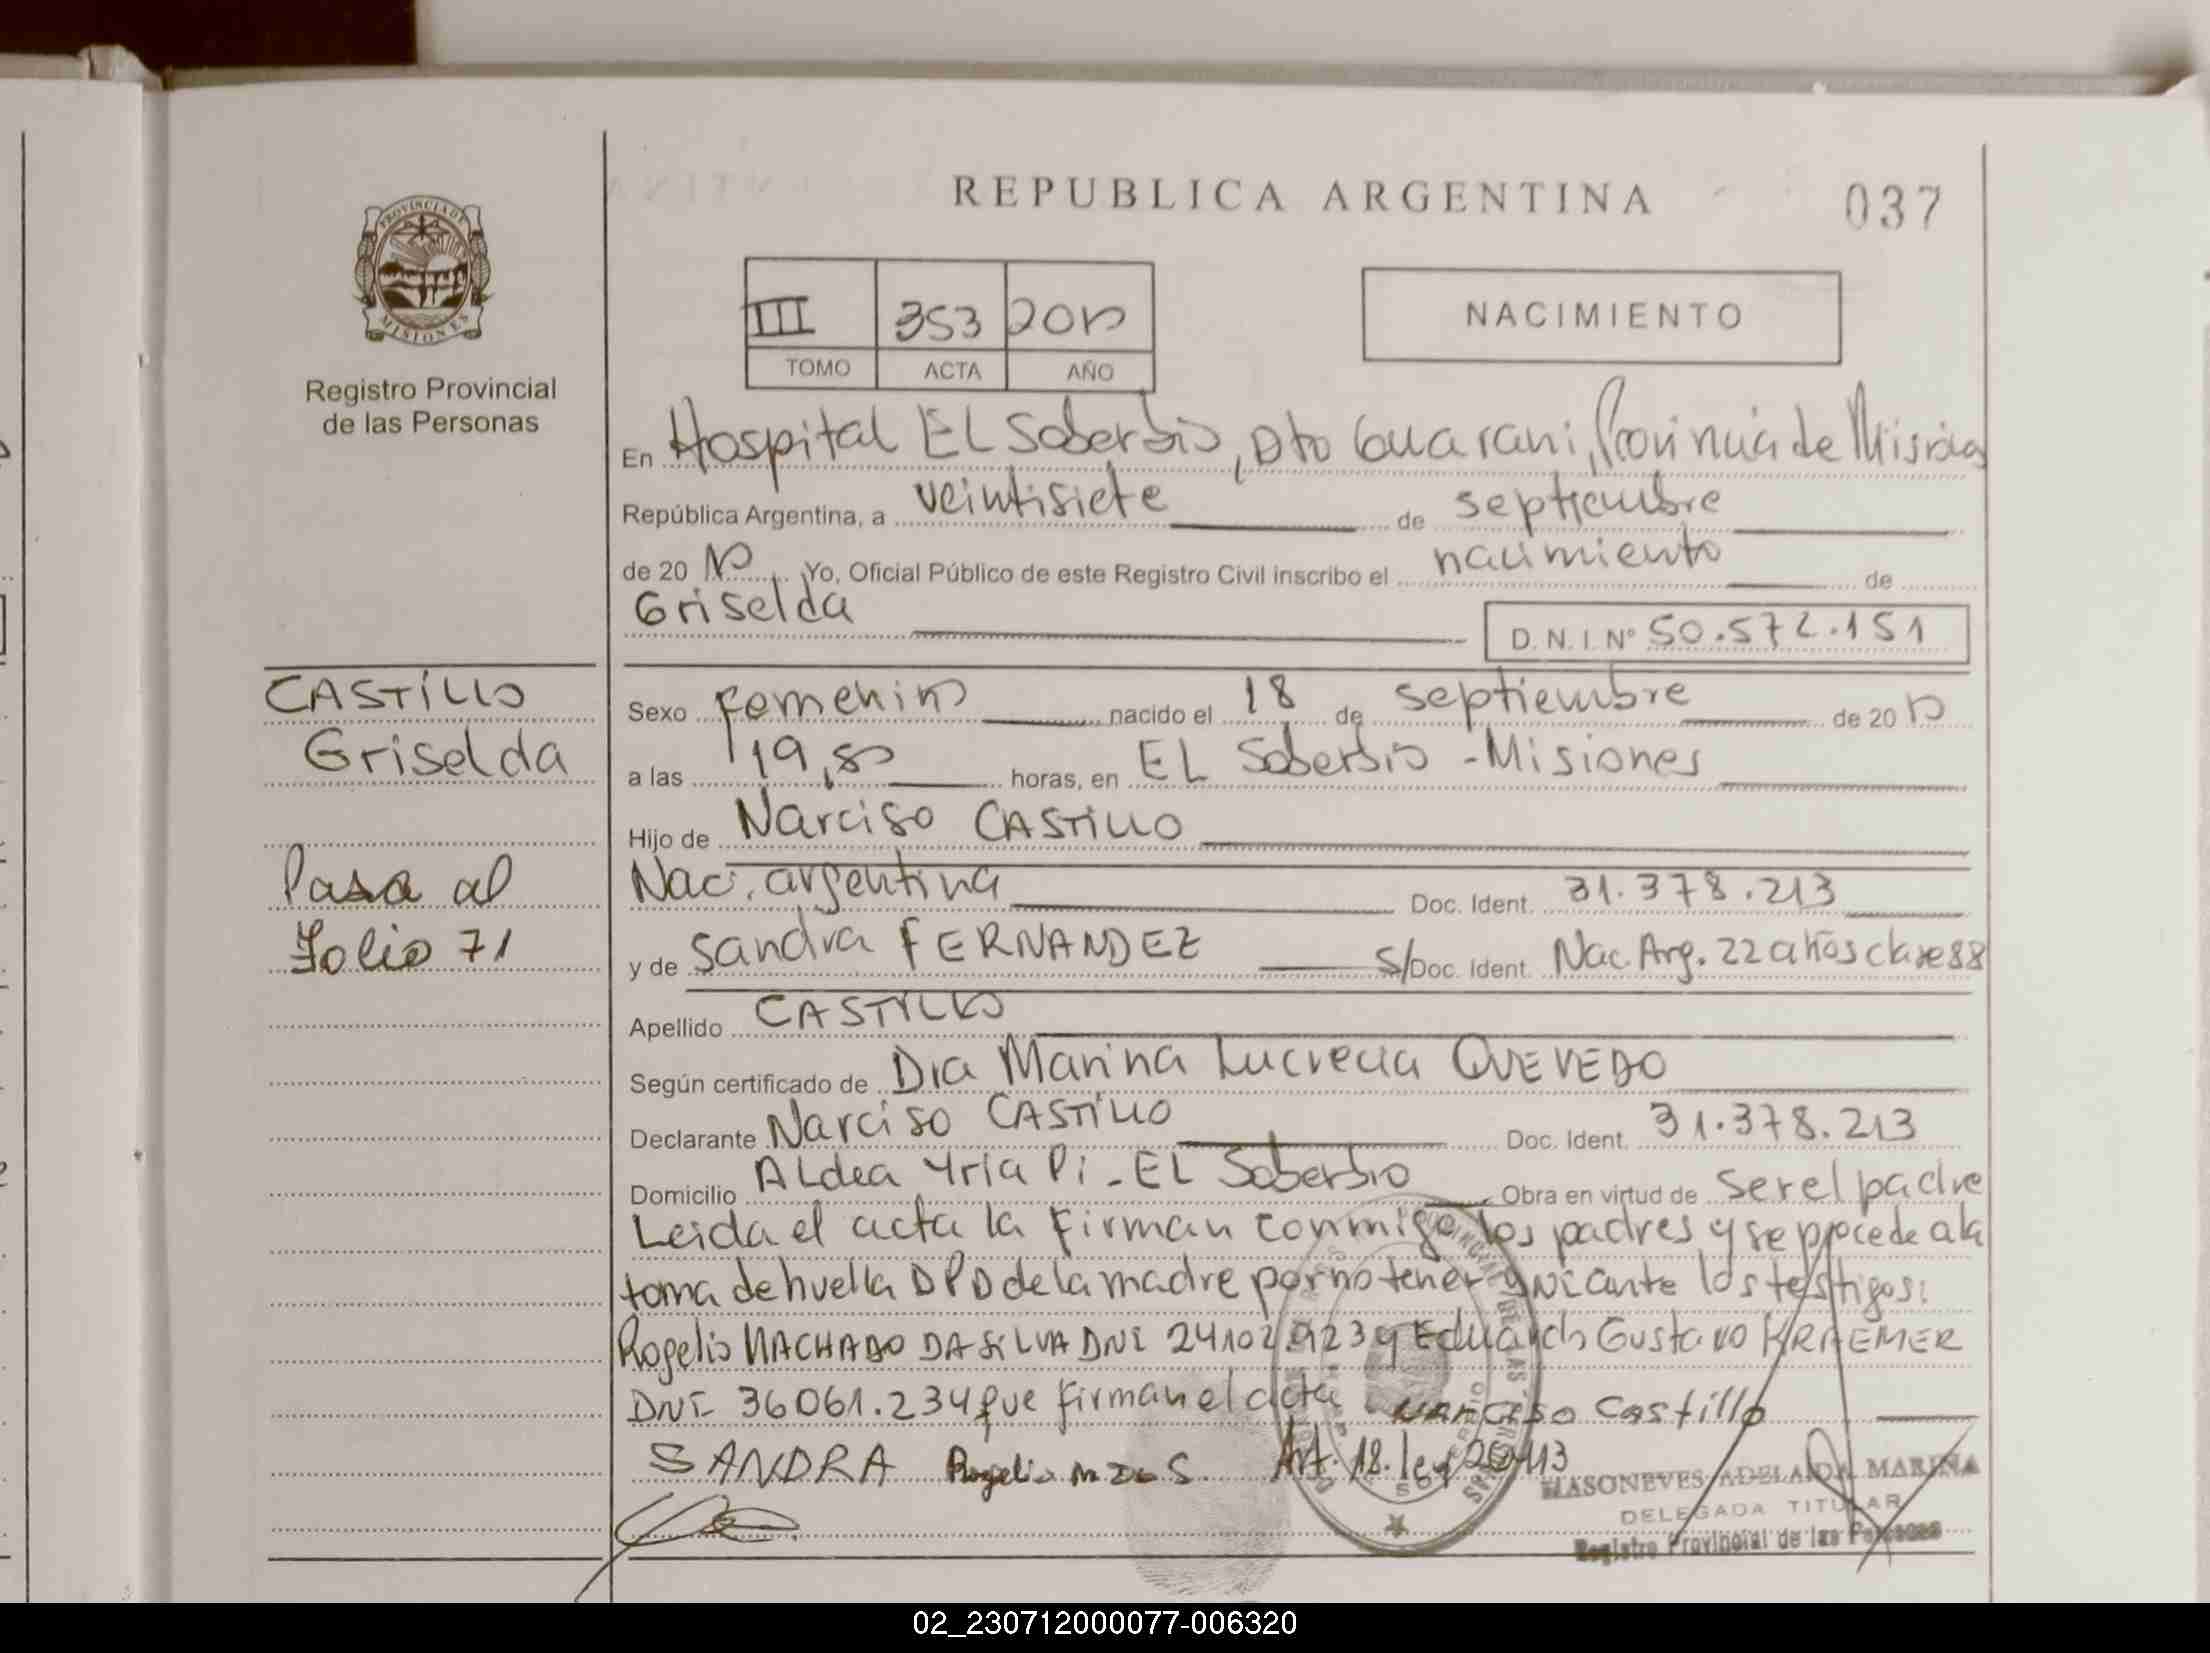 REPUBLICA ARGENTINA
037
PROVINCIA DE
MISIONES
Registro Provincial
de las Personas
III 353 2010
TOMO ACTA AÑO
NACIMIENTO
En Hospital EL Soberbio, Dto Guarani, Provincia de Misiones
República Argentina, a veintisiete de septiembre
de 20 10 Yo, Oficial Público de este Registro Civil inscribo el nacimiento de
Griselda
D. N. I. Nº 50.572.151
CASTILLO
Griselda
Pasa al
Folio 71
Sexo Femenino nacido el 18 de septiembre de 20 10
a las 19, horas, en EL Soberbio - Misiones
Hijo de Narciso CASTILLO
Nac. argentina Doc. Ident. 31.378.213
y de Sandra FERNANDEZ S/Doc. Ident. Nac. Arg. 22 años clase 88
Apellido CASTILLO
Según certificado de Dra Marina Lucrecia QUEVEDO
Declarante Narciso CASTILLO Doc. Ident. 31.378.213
Domicilio ALdea Yria Pi - EL Soberbio Obra en virtud de ser el padre
Leida el acta la firman conmigo los padres y se procede a la
toma de huella DPD de la madre por no tener DNI ante los testigos:
Rogelio MACHADO DA SILVA DNI 24102.923 y Eduardo Gustavo KRAEMER
DNI 36061.234 que firman el acta Narciso Castillo
SANDRA Rogelio M D S Art. 18. ley 26413
MASONEVES ADELAIDA MARINA
DELEGADA TITULAR
Registro Provincial de las Personas
02_230712000077-006320